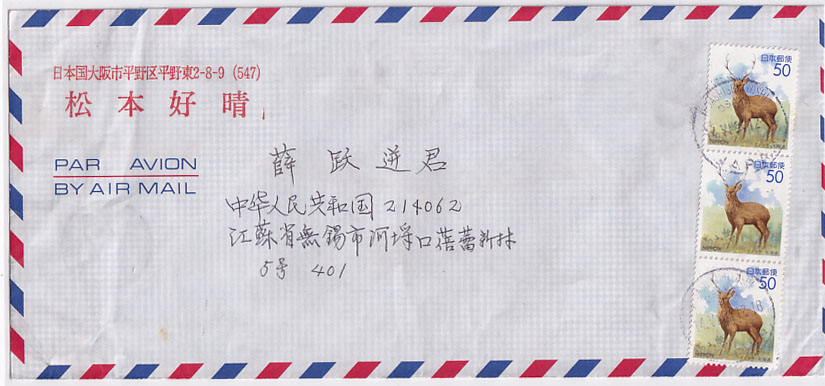 日本国大阪市平野区平野東2-8-9 (547)
松本好晴
PAR AVION
BY AIR MAIL
薛 跃 逆 君
中华人民共和国 214062
江蘇省無錫市河埒口蓓蕾新村
5号 401
日本郵便
50
NIPPON
日本郵便
50
NIPPON
日本郵便
50
NIPPON